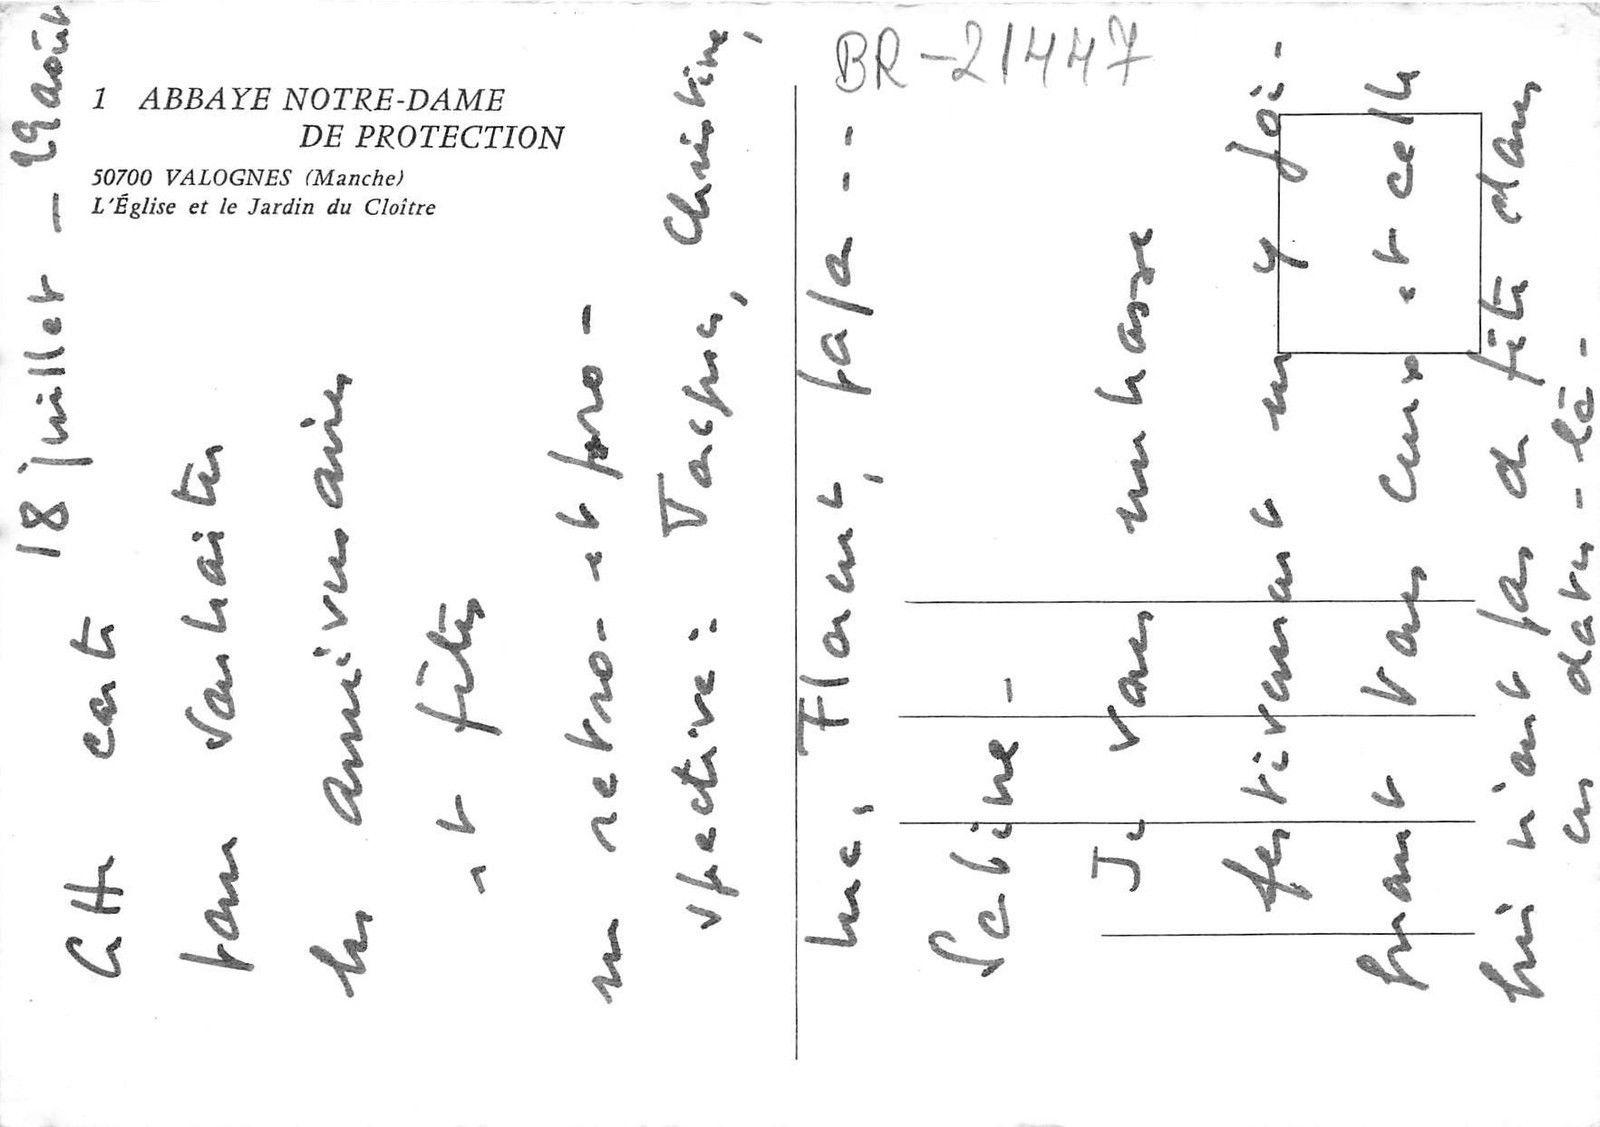 1 ABBAYE NOTRE-DAME
DE PROTECTION
50700 VALOGNES (Manche)
L'Église et le Jardin du Cloître
BR-21447
18 juillet - 29 août
Cette carte
pour souhaiter
les anniversaires
et fêtes
en rétro- et pro-
spective: Jacques, Christine,
Luc, Florent, papa--
Sabine-
Je vous embrasse
festivement en y joi-
gnant tous ceux et celles
qui n'ont pas de fête dans
ces dates-là-